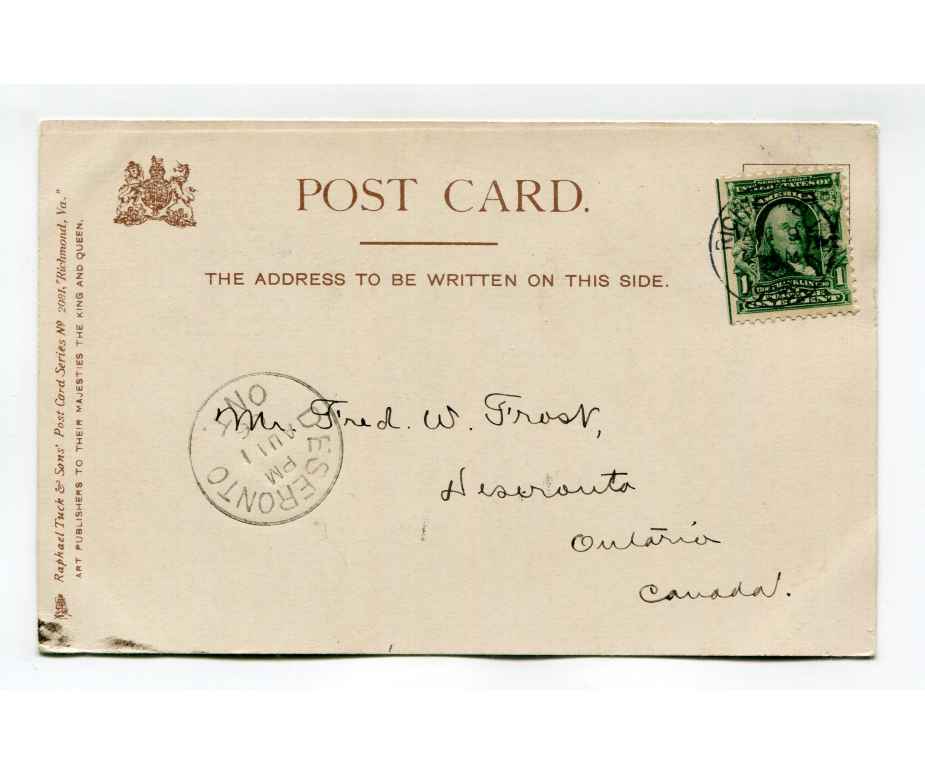 POST CARD.
THE ADDRESS TO BE WRITTEN ON THIS SIDE.
Raphael Tuck & Sons' Post Card Series No 2081, "Richmond, Va."
ART PUBLISHERS TO THEIR MAJESTIES THE KING AND QUEEN.
RICH
SERIES 1902
UNITED STATES OF
AMERICA
1 FRANKLIN 1
POSTAGE
ONE CENT
DESERONTO ONT.
PM
AU 11
Mr. Fred. W. Frost,
Deseronto
Ontario
Canada.